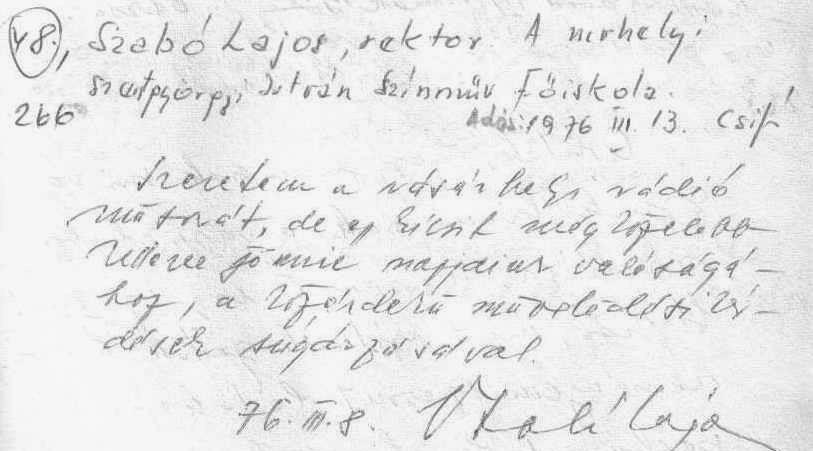 48., Szabó Lajos, rektor. A mvhelyi
Szentgyörgyi István Színműv Főiskola.
266 Adás: 1976 III. 13. Csifó
Szeretem a vásárhelyi rádió
műsorát, de egy kicsit még közelebb
kellene jönnie napjaink valóságá-
hoz, a közérdekű művelődési kér-
dések sugárzásával.
76. III. 8. Szabó Lajos